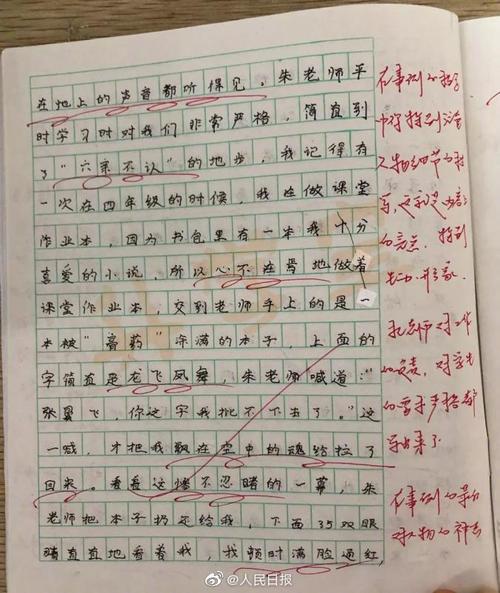 在地上的声音都听得见。朱老师平
时学习时对我们非常严格，简直到
了“六亲不认”的地步，我记得有
一次在四年级的时候，我在做课堂
作业本，因为书包里有一本我十分
喜爱的小说，所以心不在焉地做着
课堂作业本，交到老师手上的是一
本被“膏药”涂满的本子，上面的
字简直是龙飞凤舞，朱老师喊道：“
张翼飞，你这字我批不下去了。”这
一喊，才把我飘在空中的魂给拉了
回来。看着这惨不忍睹的一幕，朱
老师把本子扔还给我，下面35双眼
睛直直地看着我，我顿时满脸通红，
在事例的
中你特别注意
人物细节的
写，这和是
的亮点。特别
朱老师对工作
的负责，对学生
的要求严格都
写出来了
在事例的
对人物的神态
@人民日报